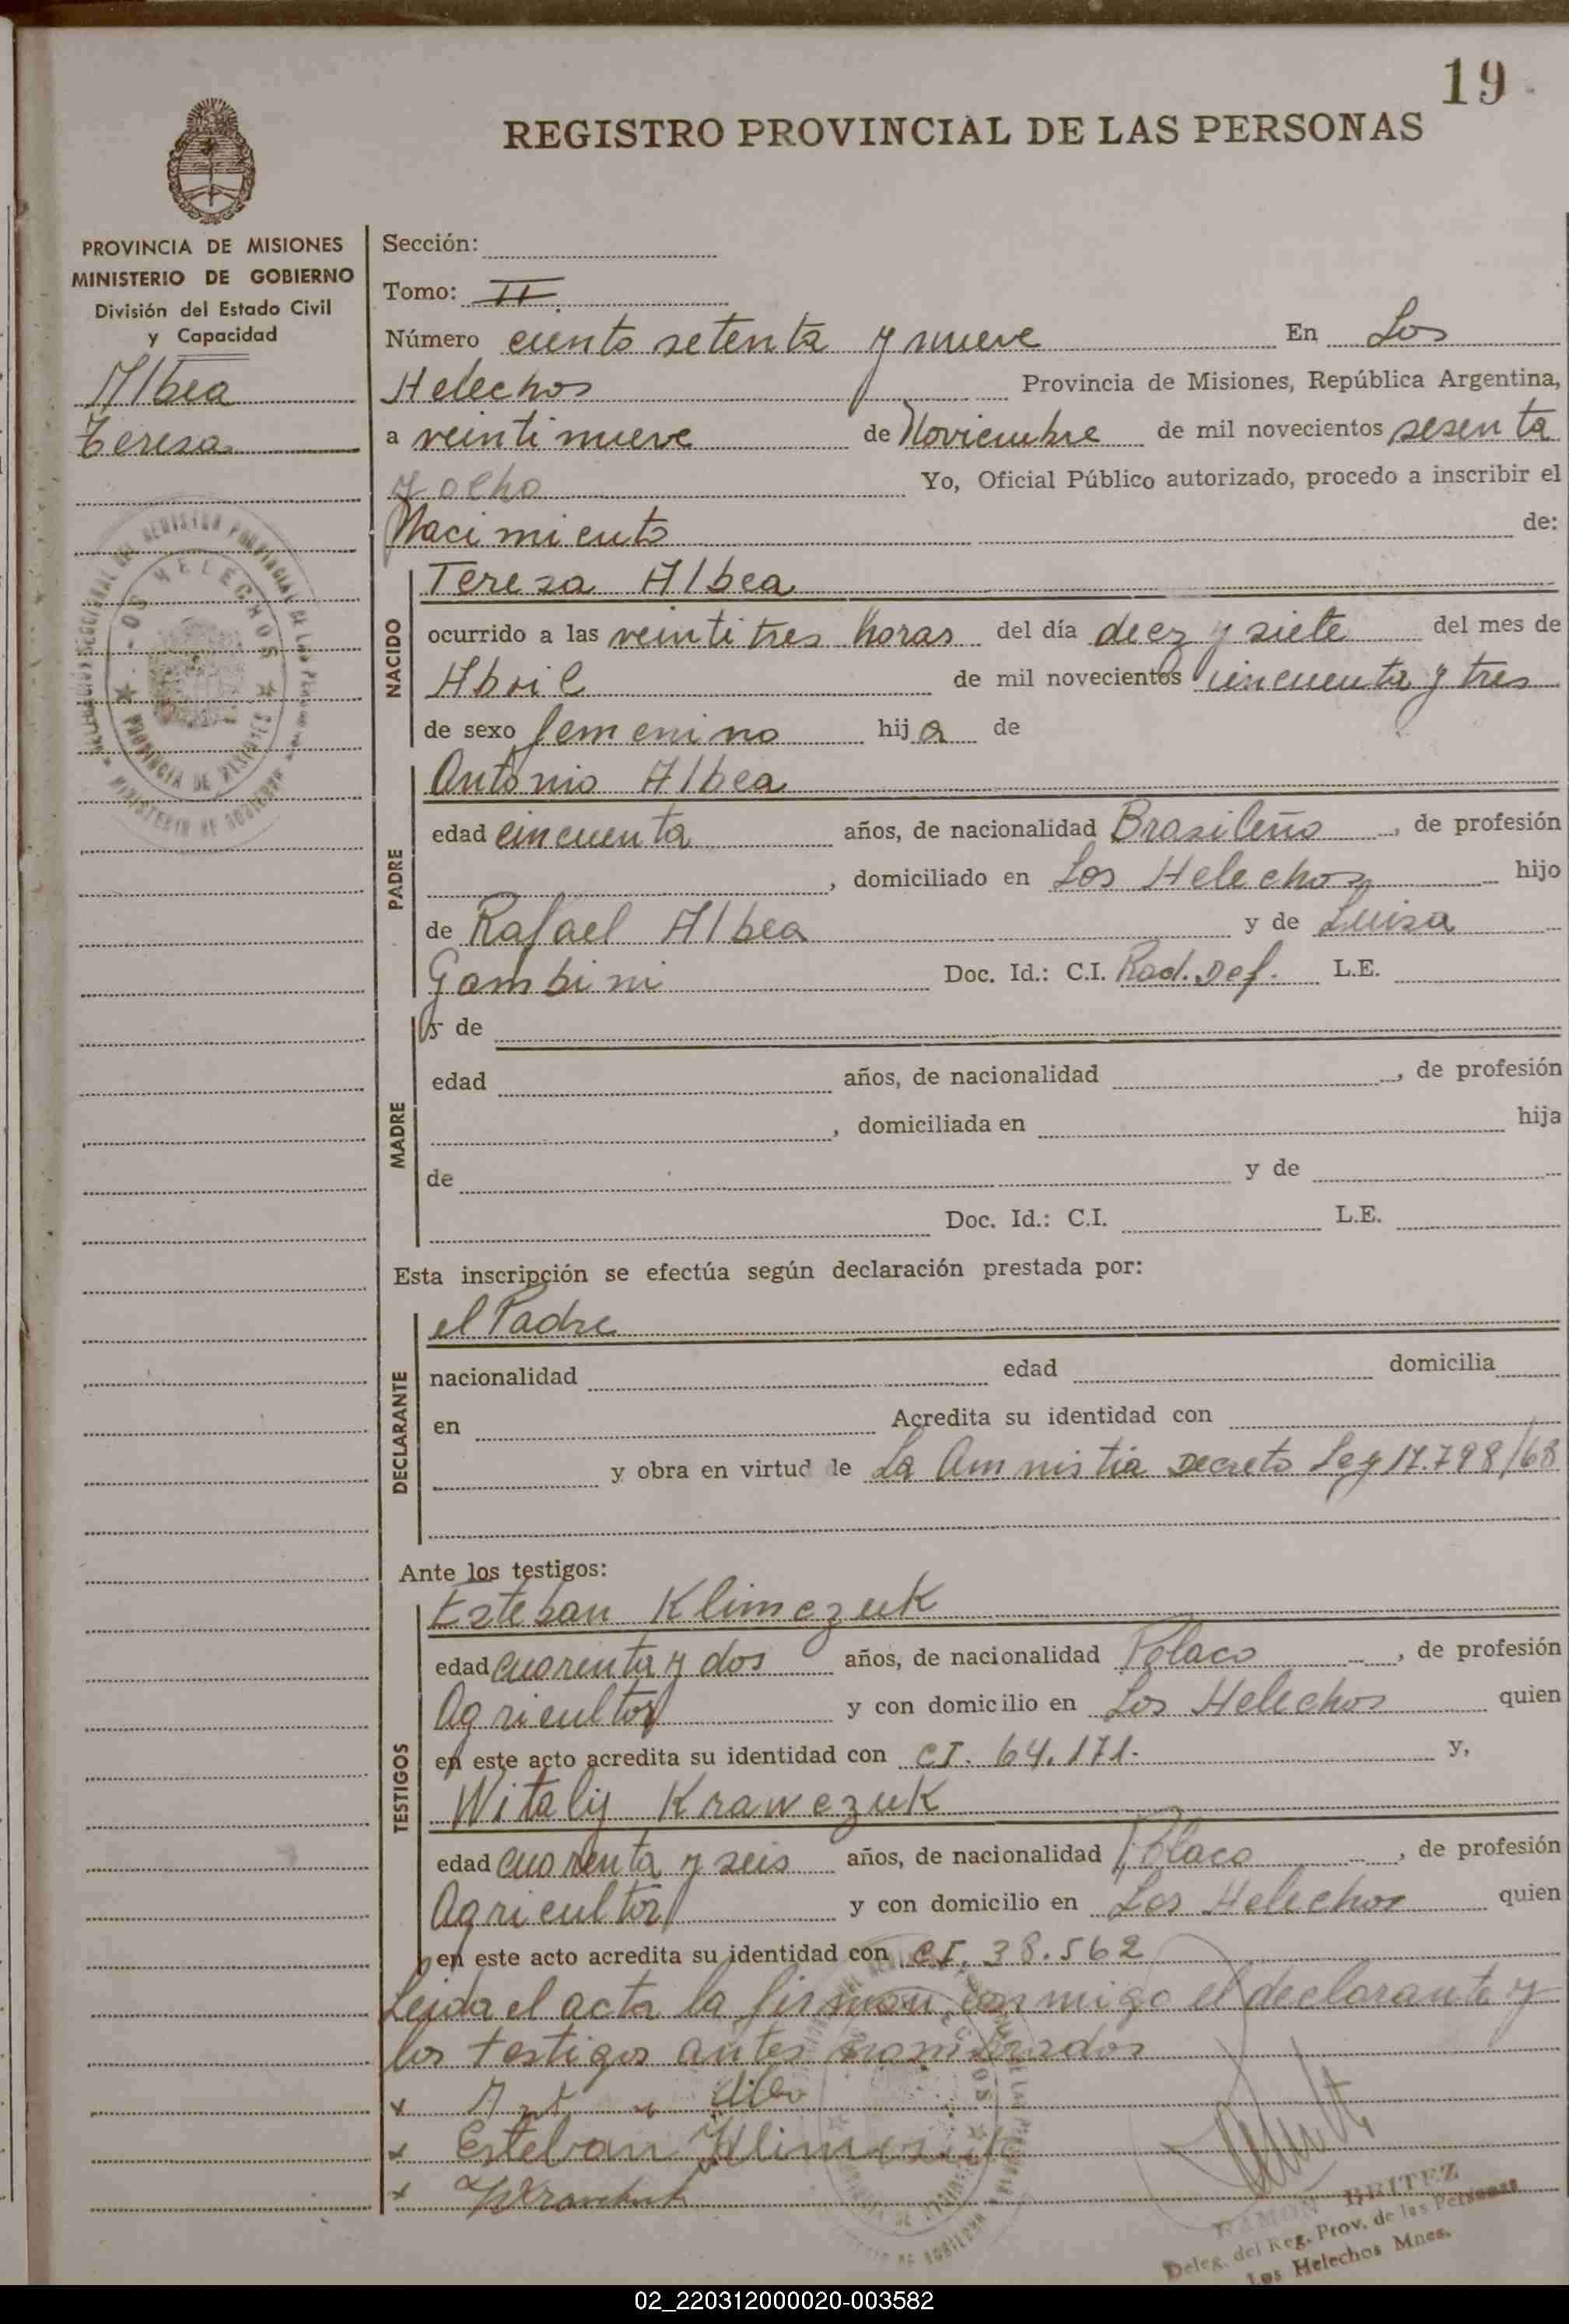 19
REGISTRO PROVINCIAL DE LAS PERSONAS
PROVINCIA DE MISIONES
MINISTERIO DE GOBIERNO
División del Estado Civil
y Capacidad
Albea
Teresa
Sección:
Tomo: II
Número ciento setenta y nueve En Los
Helechos Provincia de Misiones, República Argentina,
a veintinueve de Noviembre de mil novecientos sesenta
y ocho Yo, Oficial Público autorizado, procedo a inscribir el
Nacimiento de:
NACIDO
Teresa Albea
ocurrido a las veintitres horas del día diez y siete del mes de
Abril de mil novecientos cincuenta y tres
de sexo femenino hija de
PADRE
Antonio Albea
edad cincuenta años, de nacionalidad Brasileño, de profesión
, domiciliado en Los Helechos hijo
de Rafael Albea y de Luisa
Gambini Doc. Id.: C.I. Rad. Def. L.E.
MADRE
de
edad años, de nacionalidad , de profesión
, domiciliada en hija
de y de
Doc. Id.: C.I. L.E.
Esta inscripción se efectúa según declaración prestada por:
DECLARANTE
el Padre
nacionalidad edad domicilia
en Acredita su identidad con
y obra en virtud de La Amnistia Decreto Ley 17.798/68
Ante los testigos:
TESTIGOS
Esteban Klimczuk
edad cuarenta y dos años, de nacionalidad Polaco, de profesión
Agricultor y con domicilio en Los Helechos quien
en este acto acredita su identidad con CI. 64.171. y,
Witaliy Krawczuk
edad cuarenta y seis años, de nacionalidad Polaco, de profesión
Agricultor y con domicilio en Los Helechos quien
en este acto acredita su identidad con CI. 38.562
Leida el acta la firman conmigo el declarante y
los testigos antes nombrados
x
x Esteban
x
RAMON BRITEZ
Deleg. del Reg. Prov. de las Personas
Los Helechos Mnes.
02_220312000020-003582